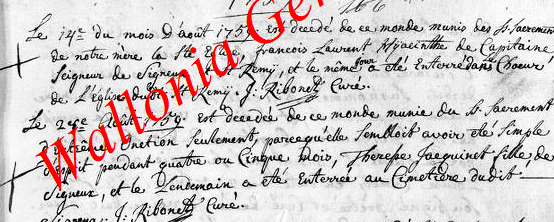 Le 14e du mois D'août 175 est decedé de ce monde munis des St. Sacrement
de notre mère la Ste Eglise, François Laurent Hyacinthe de Capitaine
Seigneur de Signeux St Remÿ, et le même jour a eté Enterré dans le Choeur
de L'Eglise du St Remÿ. J. Ribonet Curé.
Le 2 est decedée de ce monde munie du St. Sacrement
Extreme Onction seulement, parcequ'elle sembloit avoir eté Simple
D'esprit pendant quatre ou Cinque mois, Therese Jacquinet fille de
Signeux, et le Lendemain a eté Enterrée au Cimetière dudit
Signeux. J. Ribonet Curé.
Wallonia Gen